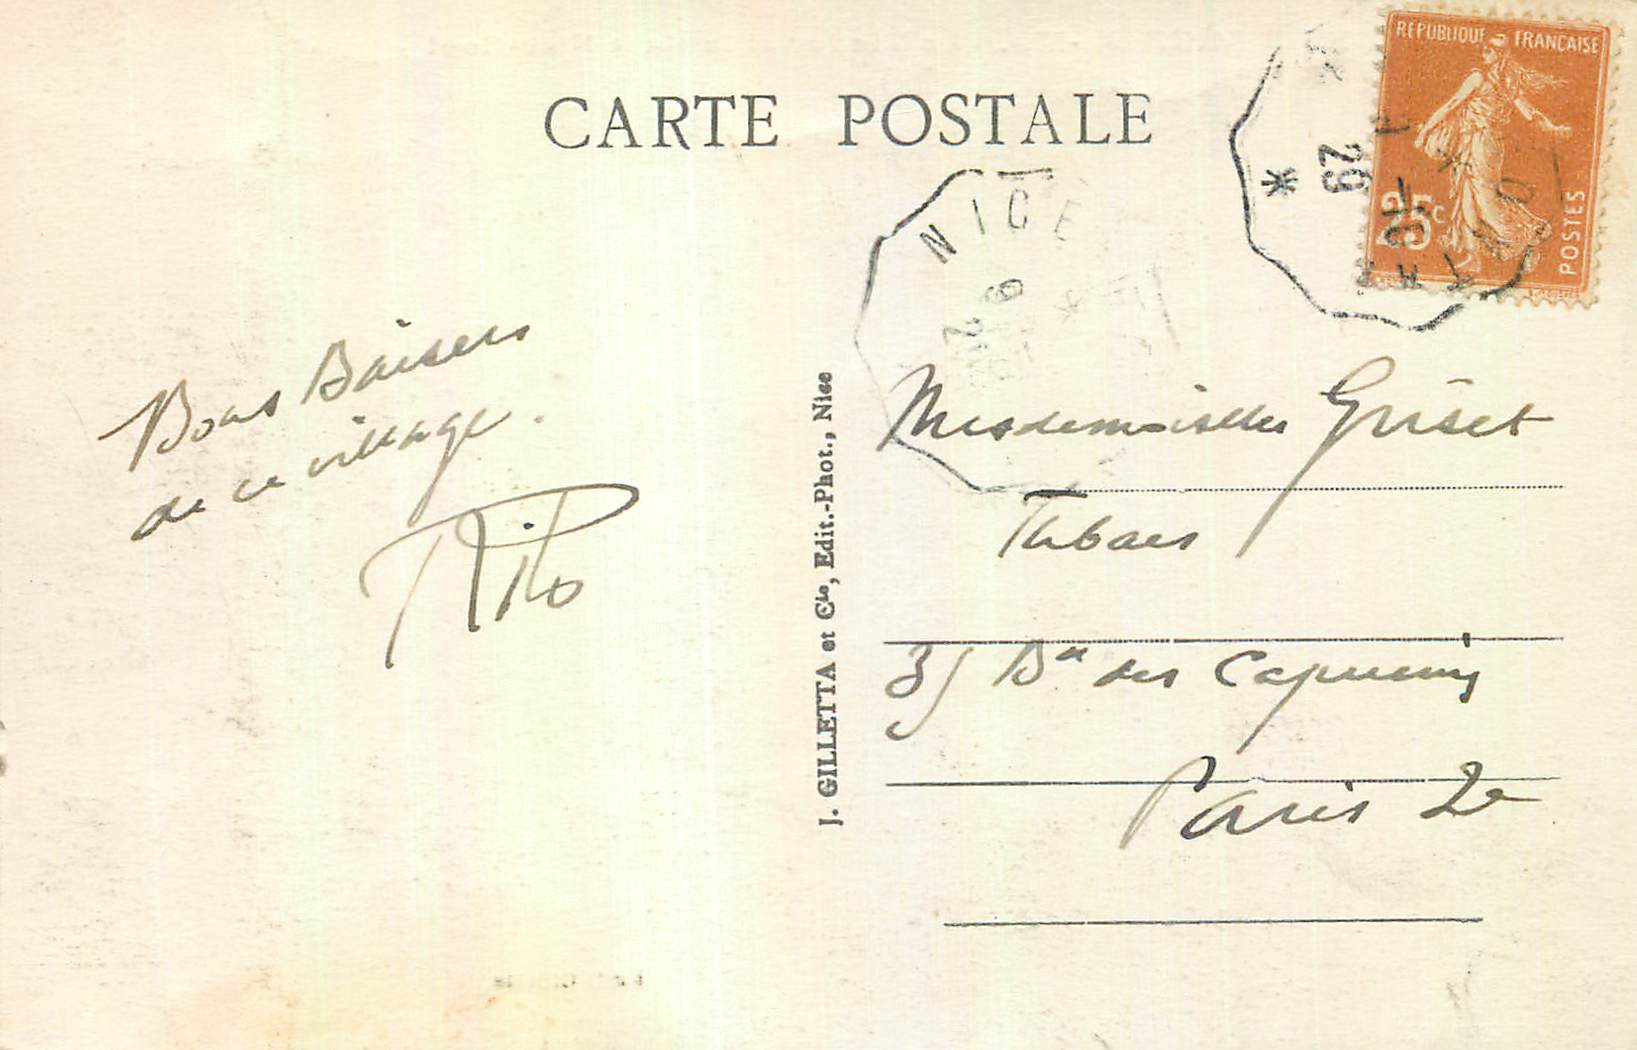 CARTE POSTALE
REPUBLIQUE FRANCAISE
25c
POSTES
29
NICE
Bons Baisers
de ce village.
J. GILLETTA et Cie, Edit.-Phot., Nice
Mesdemoiselles Griset
Tabacs
35 Bd des Capucines
Paris 2e